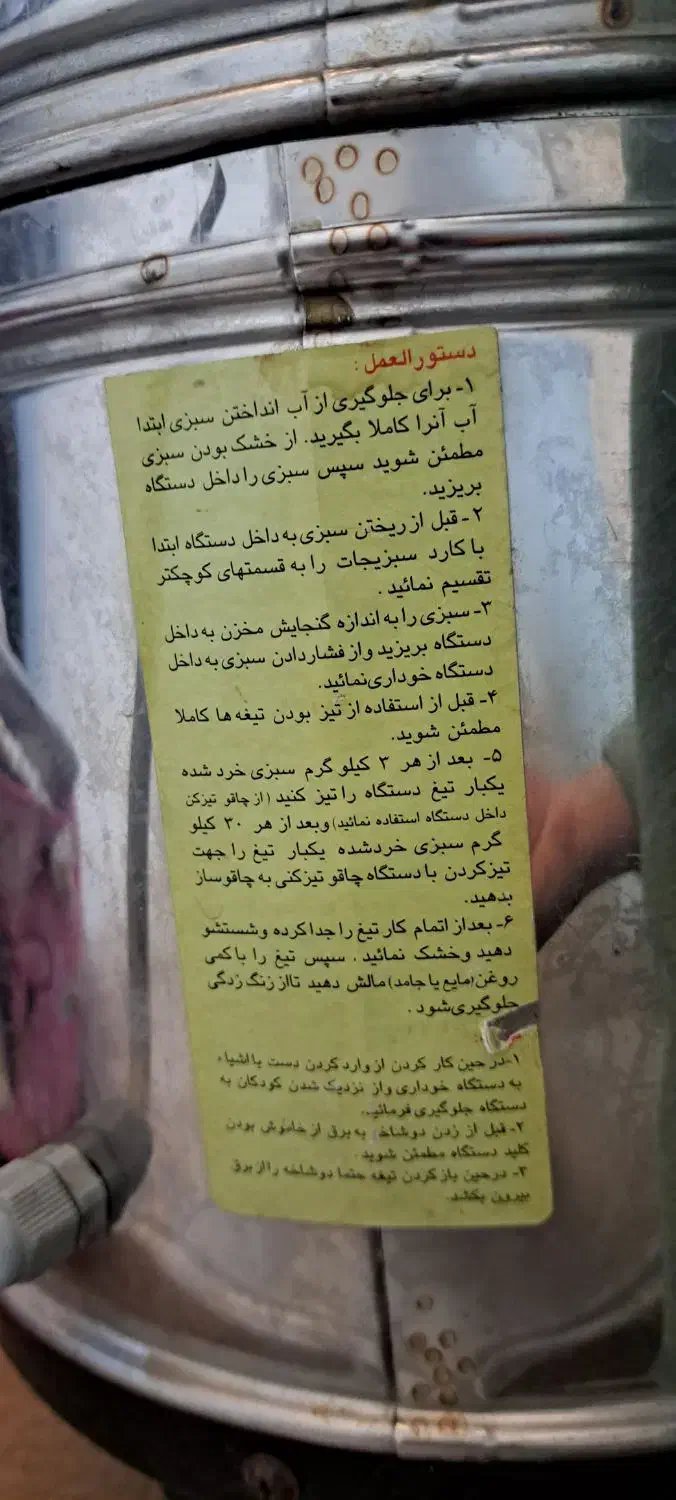 دستورالعمل :
۱- برای جلوگیری از آب انداختن سبزی ابتدا
آب آنرا کاملا بگیرید. از خشک بودن سبزی
مطمئن شوید سپس سبزی را داخل دستگاه
بریزید.
۲- قبل از ریختن سبزی به داخل دستگاه ابتدا
با کارد سبزیجات را به قسمتهای کوچکتر
تقسیم نمائید .
۳- سبزی را به اندازه گنجایش مخزن به داخل
دستگاه بریزید و از فشار دادن سبزی به داخل
دستگاه خوداری نمائید.
۴- قبل از استفاده از تیز بودن تیغه ها کاملا
مطمئن شوید.
۵- بعد از هر ۳ کیلو گرم سبزی خرد شده
یکبار تیغ دستگاه را تیز کنید (از چاقو تیزکن
داخل دستگاه استفاده نمائید) و بعد از هر ۳۰ کیلو
گرم سبزی خردشده یکبار تیغ را جهت
تیزکردن با دستگاه چاقو تیزکنی به چاقوساز
بدهید.
۶- بعداز اتمام کار تیغ را جدا کرده و شستشو
دهید و خشک نمائید . سپس تیغ را با کمی
روغن(مایع یا جامد) مالش دهید تااز زنگ زدگی
جلوگیری شود .
۱-در حین کار کردن از وارد کردن دست یا اشیاء
به دستگاه خوداری واز نزدیک شدن کودکان به
دستگاه جلوگیری فرمائید.
۲- قبل از زدن دوشاخه به برق از خاموش بودن
کلید دستگاه مطمئن شوید .
۳- درحین باز کردن تیغه حتما دوشاخه را از برق
بیرون بکشد.